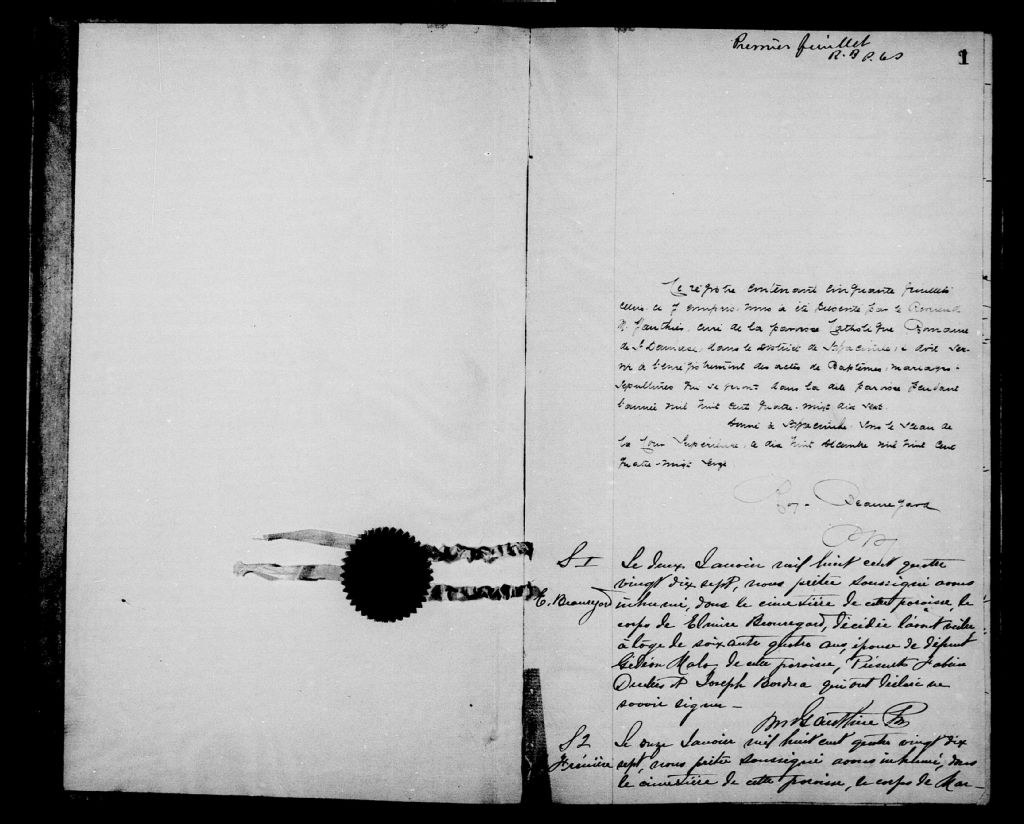 Premier feuillet
1
Le régistre contenant cinquante feuillets
celui-ci y compris, nous a été présenté par le Révérend
curé de la paroisse Catholique Romaine
de St Damase, dans le District de St Hyacinthe, & doit ser-
vir à l'enregistrement des actes de Baptêmes, mariages,
Sépultures qui se feront dans la dite paroisse pendant
l'année mil huit cent quatre-vingt dix sept.
Donné à St Hyacinthe, sous le Sceau de
la Cour Supérieure, le dix huit décembre mil huit cent
quatre-vingt seize
Roy - Beauregard
S 1 Le deux Janvier mil huit cent quatre
vingt dix sept, nous prêtre soussigné avons
E. Beauregard inhumé, dans le cimetière de cette paroisse, le
corps de Elmire Beauregard, décédée l'avant veille
à l'age de soixante quatre ans, épouse de défunt
Gédéon Malo de cette paroisse, Présents
Joseph qui ont déclaré ne
savoir signer -
Ptr
S 2 Le onze Janvier mil huit cent quatre vingt dix
sept, nous prêtre soussigné avons inhumé, dans
le cimetière de cette paroisse, le corps de Mar-